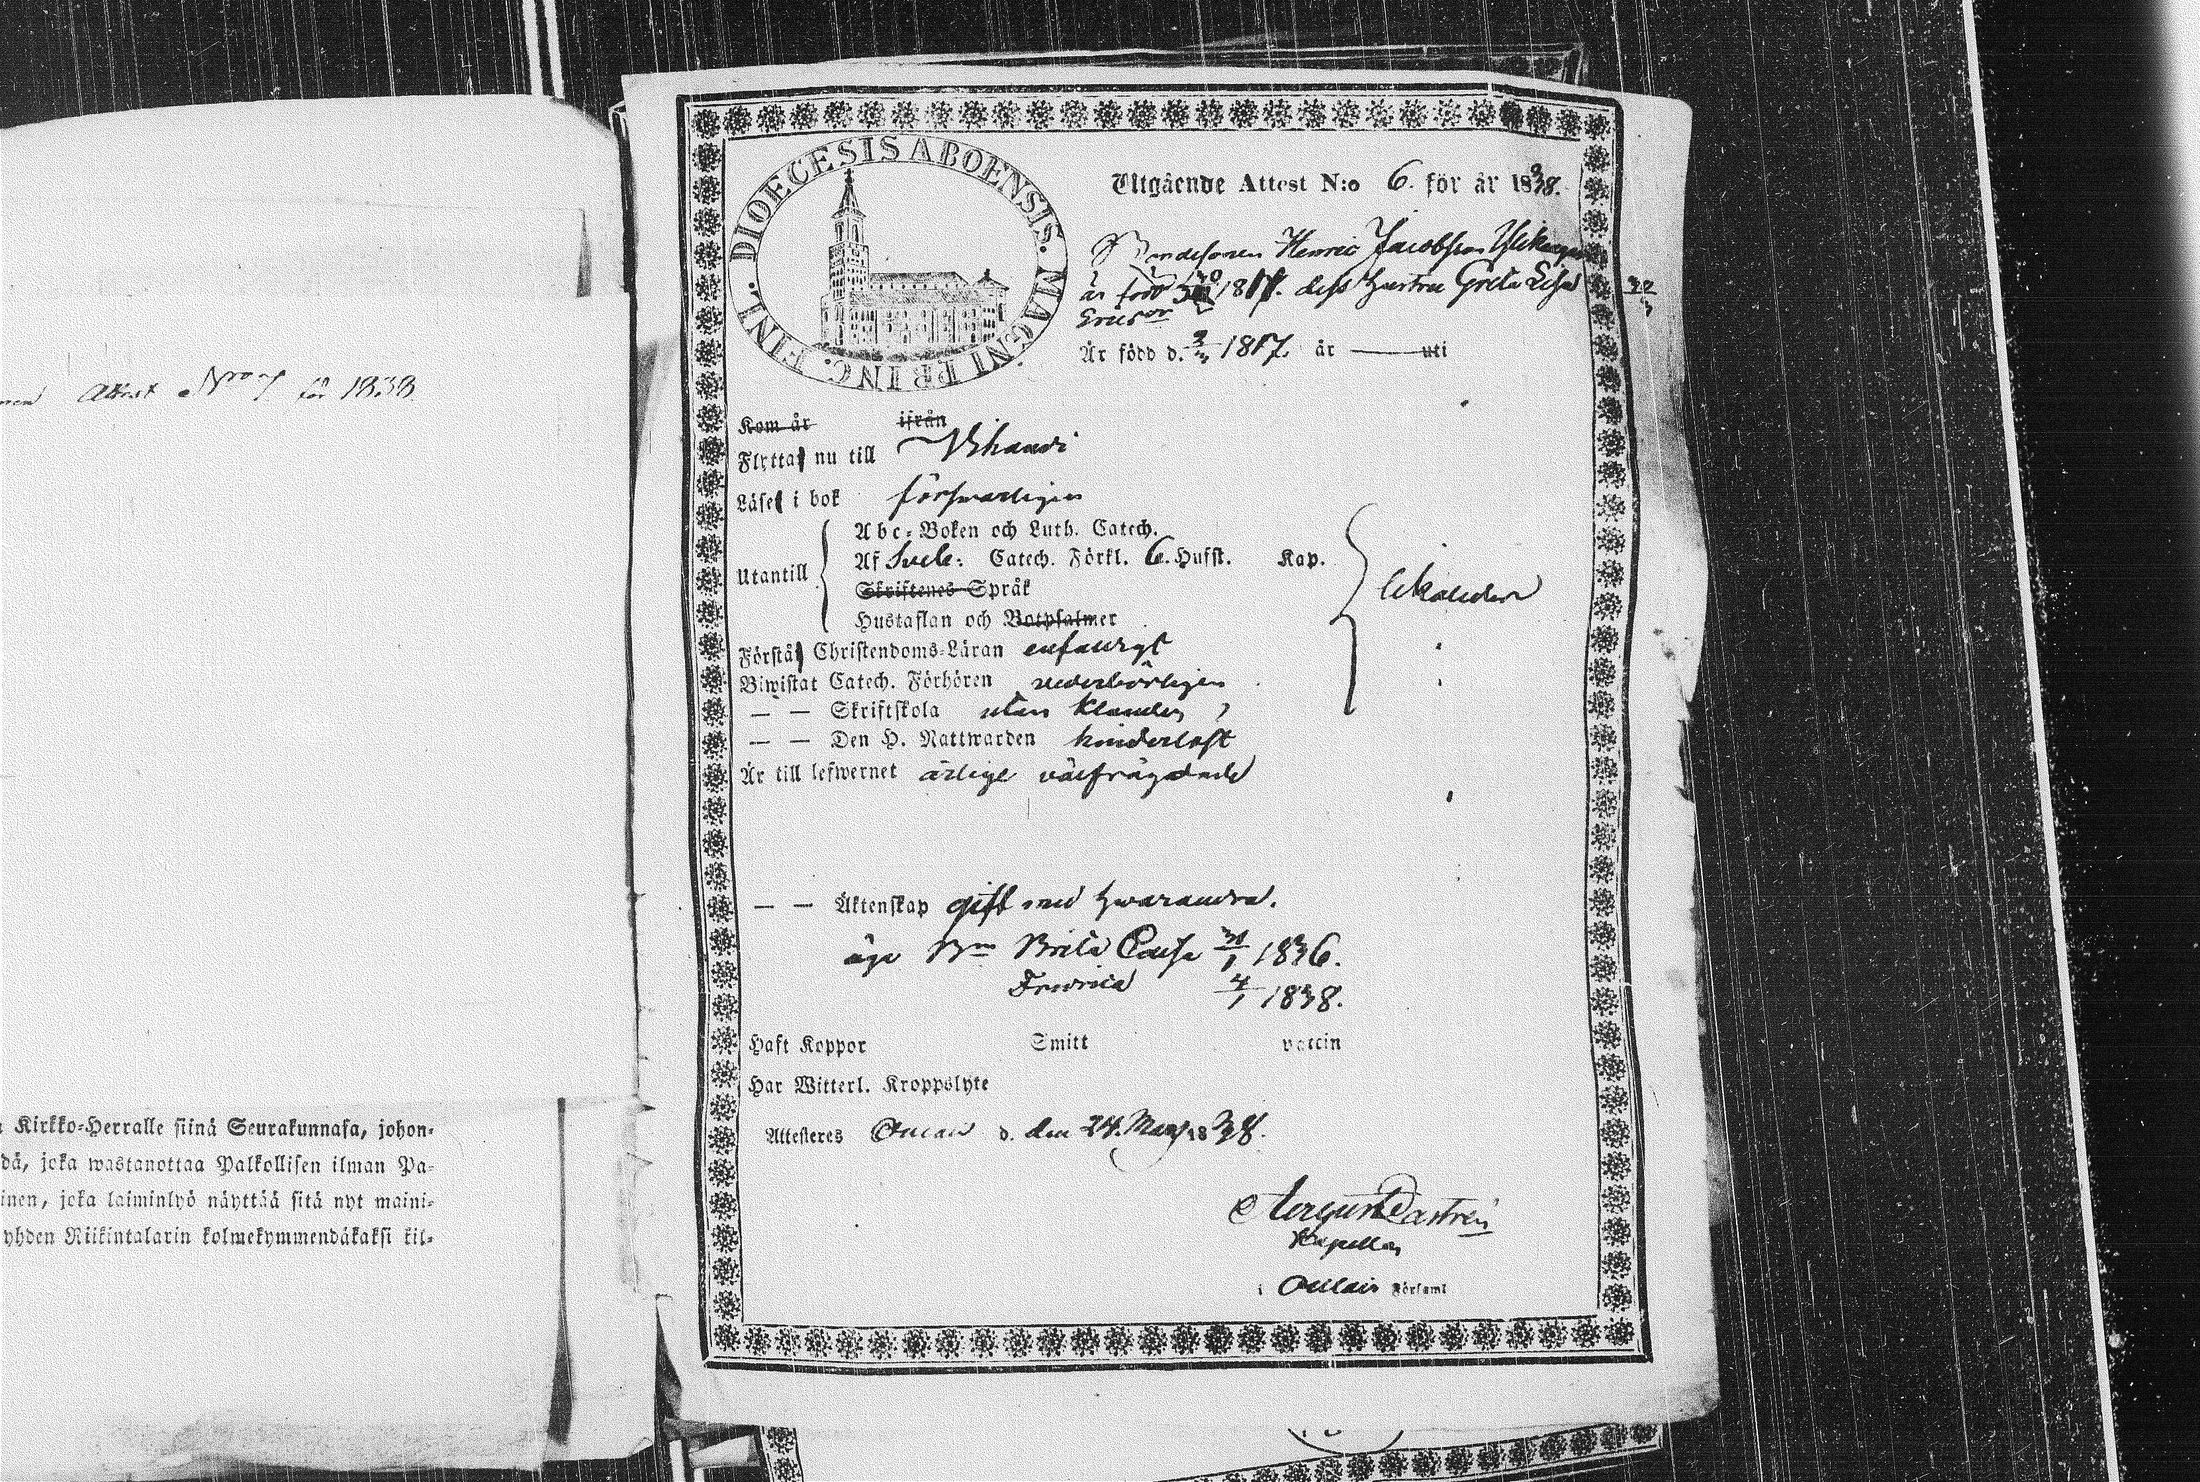 Attest Nro 7 för 1838
Kirkko-Herralle siinä Seurakunnasa, johon-
dä, joka wastanottaa Palkollisen ilman Pa-
inen, joka laiminlyö näyttää sitä nyt maini-
yhden Riikintalarin kolmekymmendäkaksi kil-
DIOECESIS ABOENSIS. MAGNI PRINC. FINL.
Utgående Attest N:o 6. för år 1838.
Bondesonen Henric Jacobsson
är född 1817. dess hustru Greta Lisa
Ericsdr
Är född d. 1817. år uti
Kom år ifrån
Flyttar nu till Vihandi
Läser i bok försvarligen
Utantill
Abc-Boken och Luth. Catech.
Af Sveb: Catech. Förkl. 6. Hufst. Kap.
Skriftenes Språk
Hustaflan och Botpsalmer
Förstår Christendoms-Läran enfaldigt
Biwistat Catech. Förhören vederbörligen
— — Skriftskola utan klander
— — Den H. Nattwarden hinderlöst
Är till lefwernet ärlige välfrägdade
— — Äktenskap gift med hwarandra.
äga Bn Brita Cajsa 31/1 1836.
Fredrica 4/1 1838.
Haft Koppor Smitt vaccin
Har Witterl. Kroppslyte
Attesteres Oulais d. den 24. Mars 1838.
August Castrén
Kapellan
i Oulais Församl